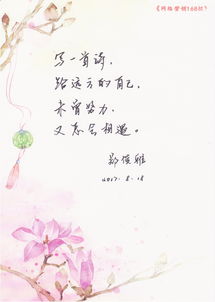 《网络营销168招》
写一首诗，
给远方的自己，
未曾努力，
又怎会相遇。
郑俊雅
2017.8.18